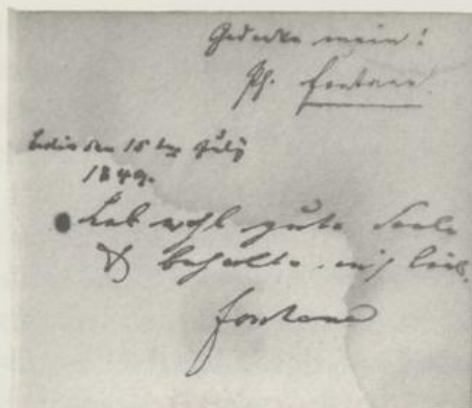 Gedenke mein!
Th. Fontane.
den 15 ten July
1849.
Leb wohl gute Seele
& behalte mich lieb.
Fontane